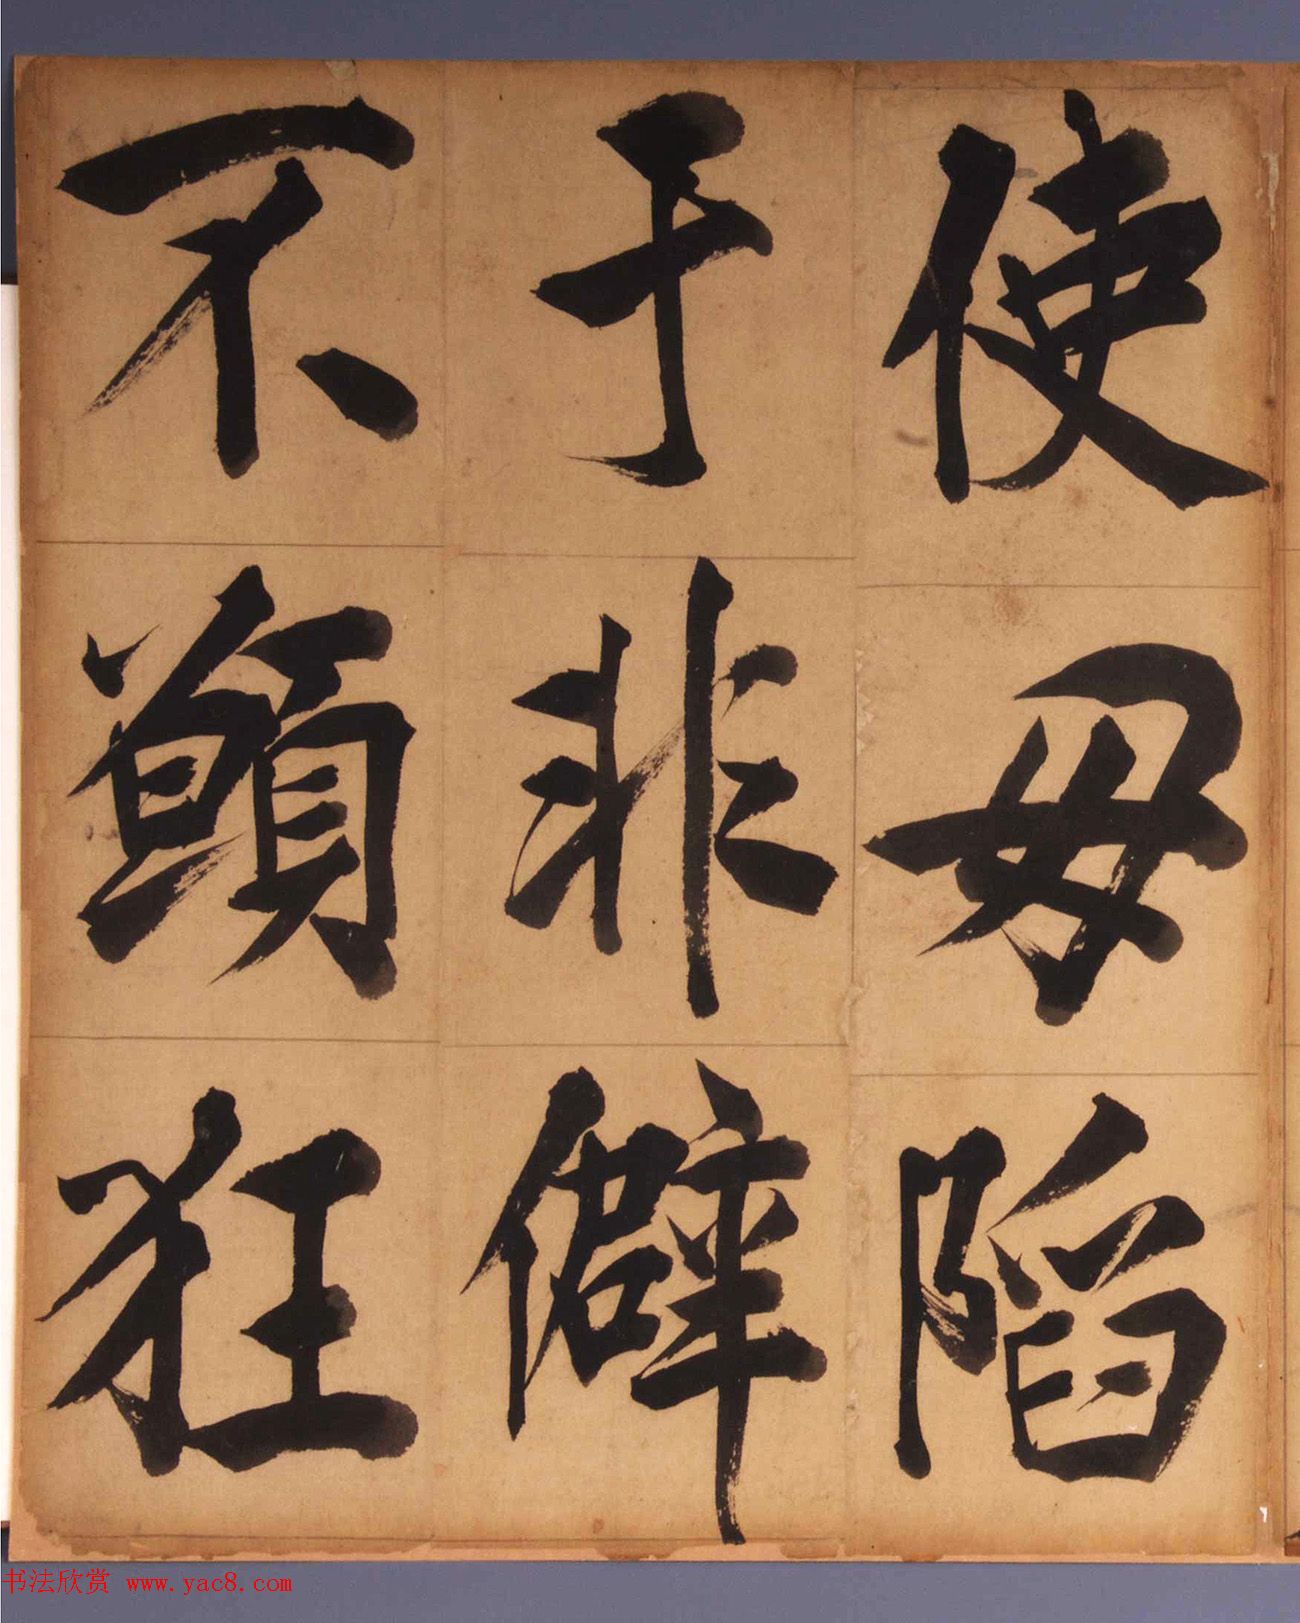 使毋陷
于非僻
不顛狂
书法欣赏 www.yac8.com